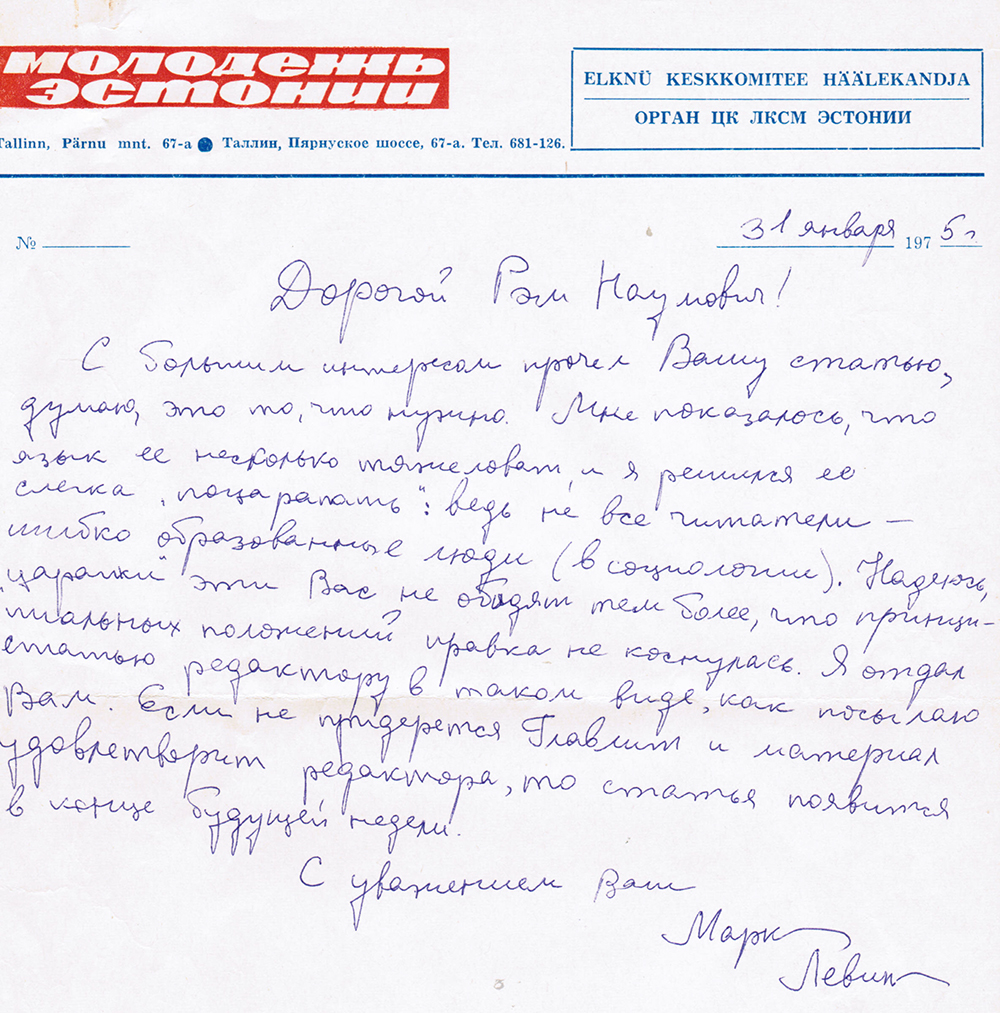 МОЛОДЕЖЬ
ЭСТОНИИ
ELKNÜ KESKKOMITEE HÄÄLEKANDJA
ОРГАН ЦК ЛКСМ ЭСТОНИИ
Tallinn, Pärnu mnt. 67-a ● Таллин, Пярнуское шоссе, 67-а. Тел. 681-126.
№
31 января 1975 г
Дорогой Рэм Наумович!
С большим интересом прочел Вашу статью,
думаю, это то, что нужно. Мне показалось, что
язык ее несколько тяжеловат, и я решился ее
слегка „поцарапать": ведь не все читатели —
шибко образованные люди (в социологии). Надеюсь,
„царапки" эти Вас не обидят тем более, что принци-
пиальных положений правка не коснулась. Я отдал
статью редактору в таком виде, как посылаю
Вам. Если не придерется Главлит и материал
удовлетворит редактора, то статья появится
в конце будущей недели.
С уважением Ваш
Марк
Левин